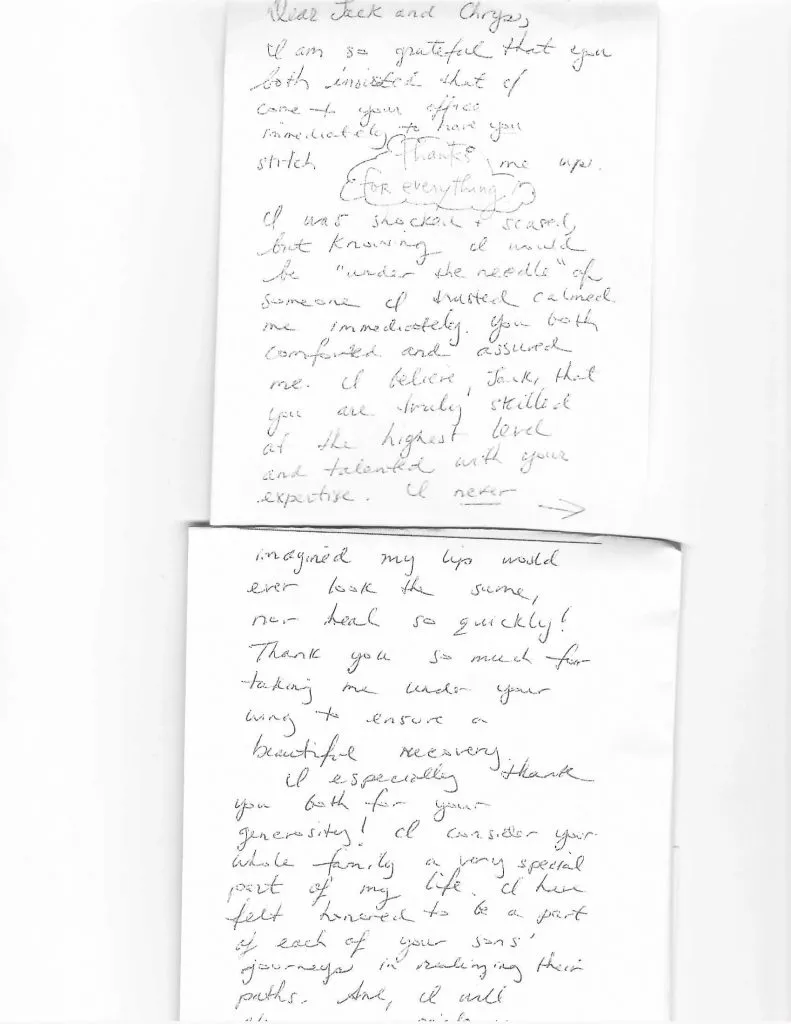 Dear Jack and Chrys,
I am so grateful that you
both insisted that I
come to your office
immediately to have you
stitch me up.
Thanks
for everything!
I was shocked + scared,
but knowing I would
be "under the needle" of
someone I trusted calmed
me immediately. You both
comforted and assured
me. I believe, Jack, that
you are truly skilled
at the highest level
and talented with your
expertise. I never
imagined my lip would
ever look the same,
nor heal so quickly!
Thank you so much for
taking me under your
wing to ensure a
beautiful recovery.
I especially thank
you both for your
generosity! I consider your
whole family a very special
part of my life. I have
felt honored to be a part
of each of your sons'
journeys in realizing their
paths. And, I will